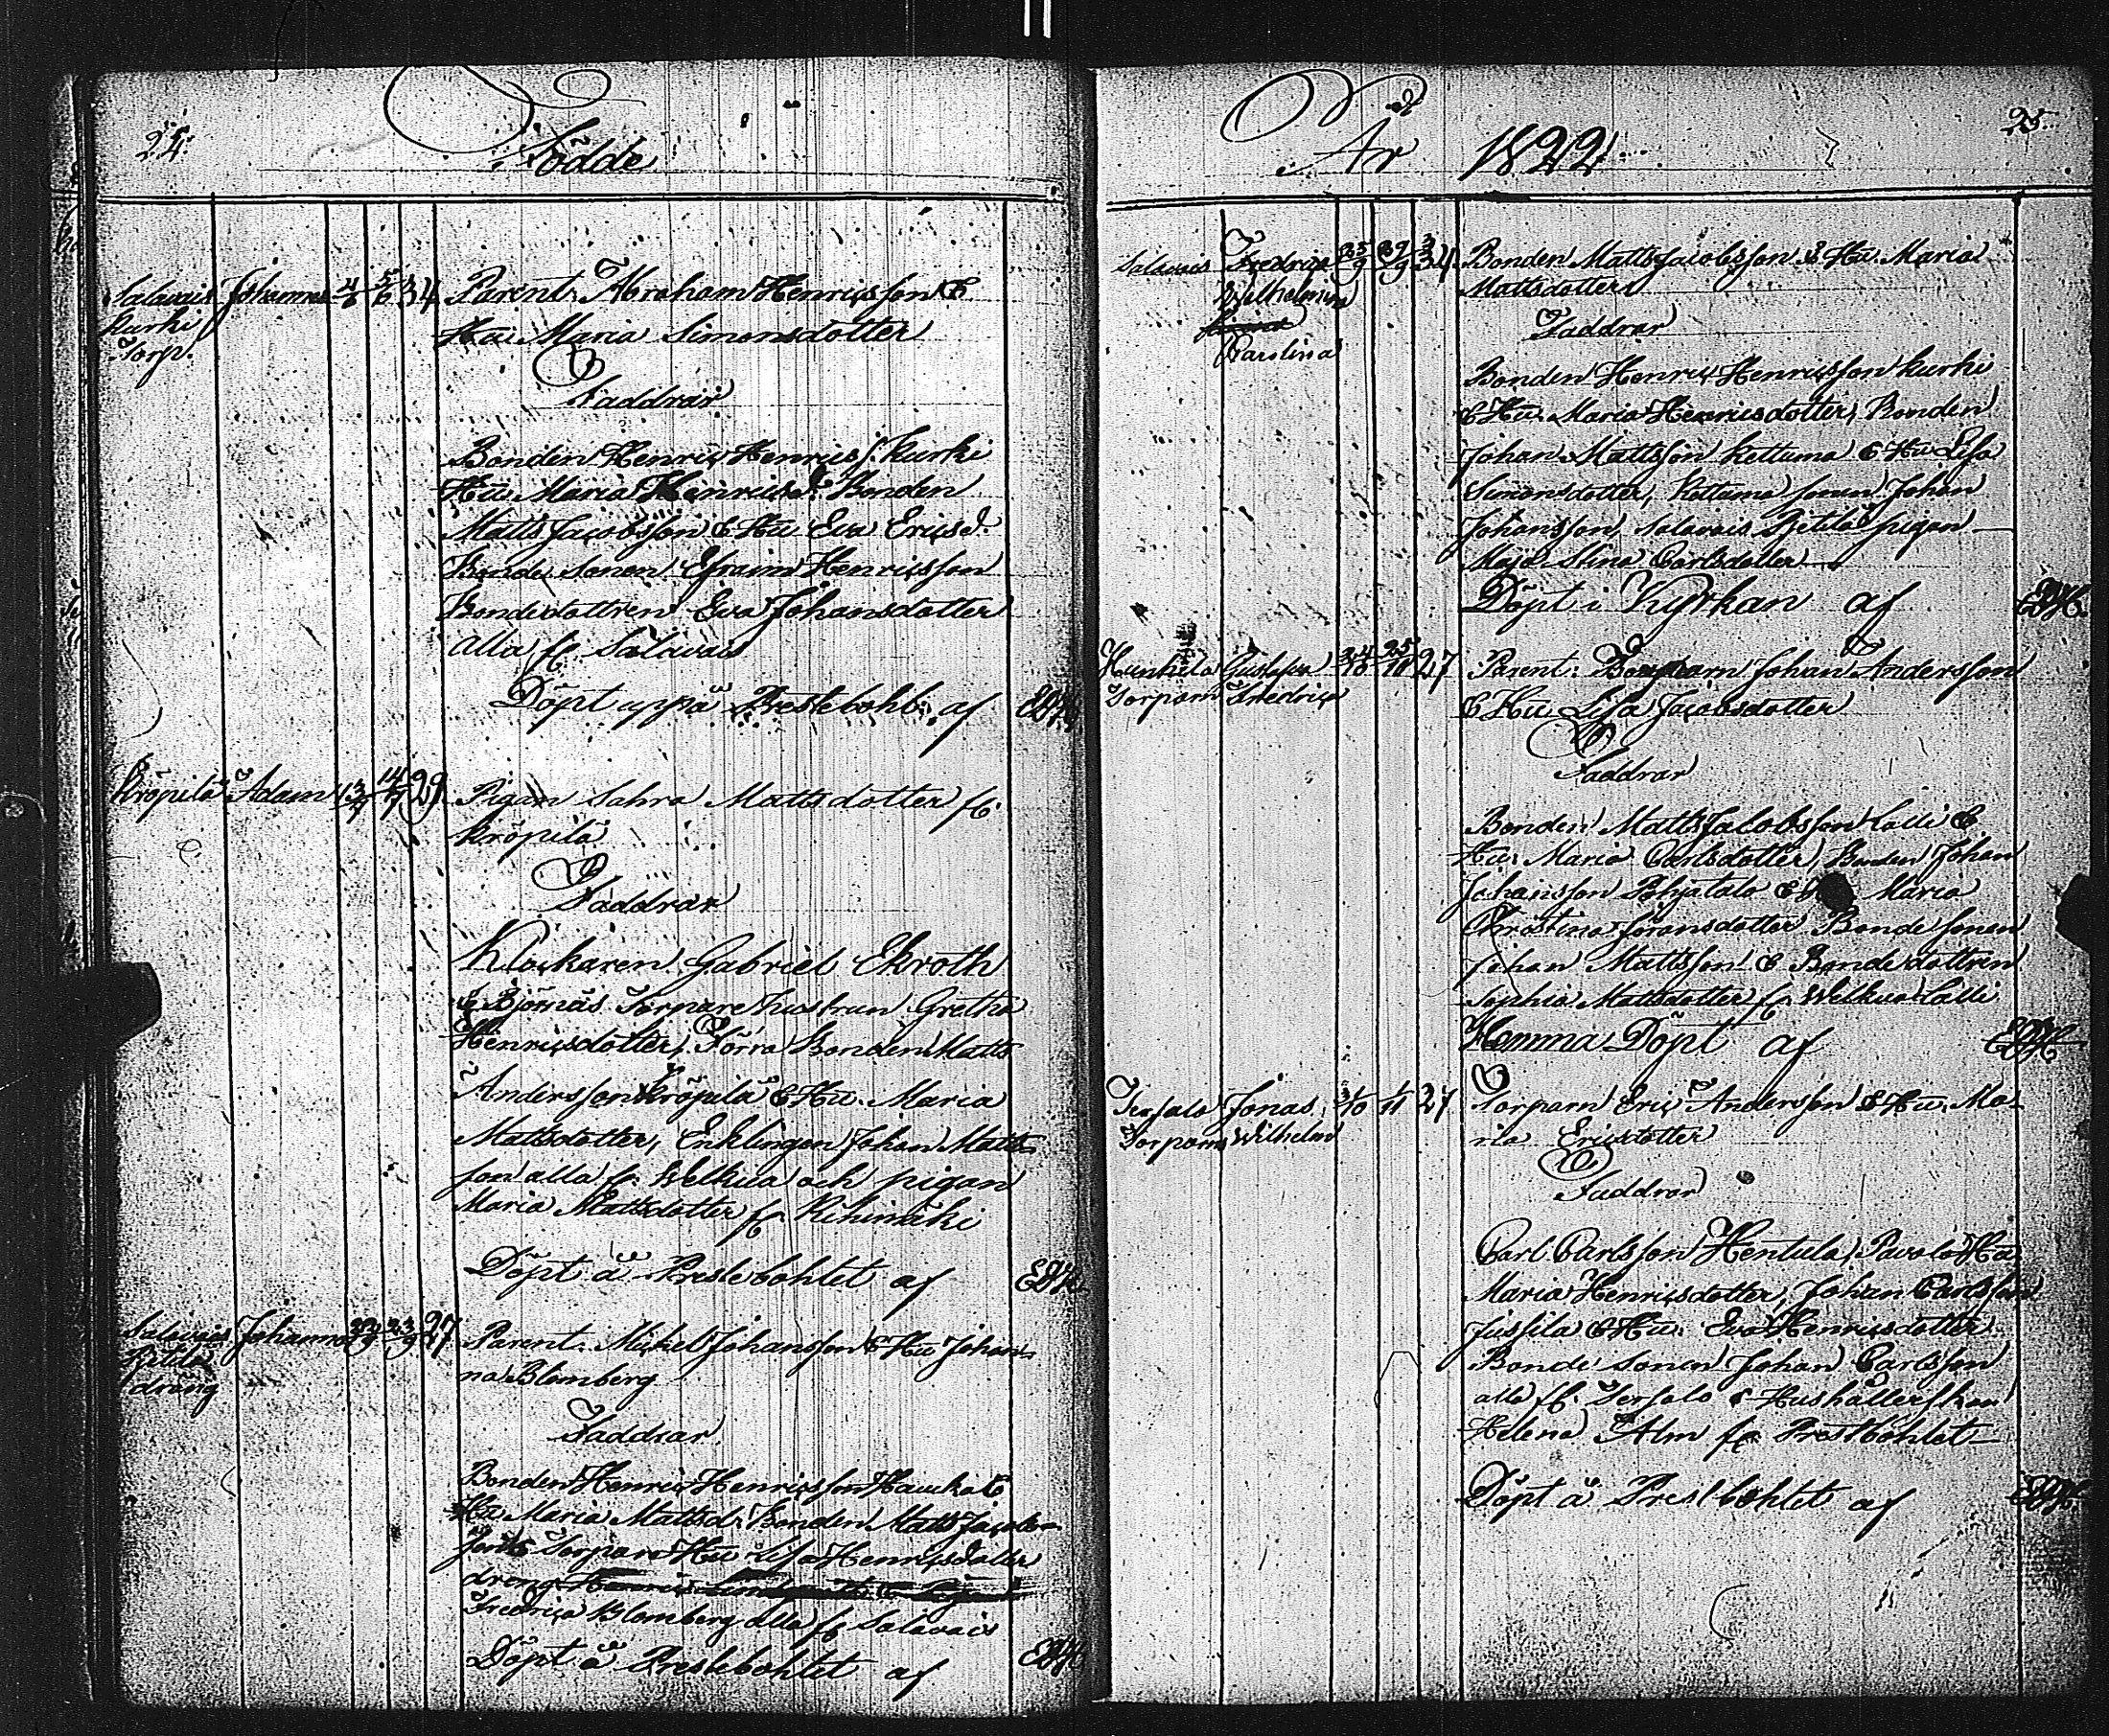 24.
Födde
Salavais Johannes 4/6 5/6 34 Parent. Abraham Henricsson &
Kurki Hu Maria Simonsdotter
Torp.
Faddrar
Bonden Henric Henrics s. Kurki
Hu Maria Henricsd. Bonden
Matts Jacobsson & Hu Eva Ericsd.
Bonde Sonen Efraim Henricsson
Bondedottren Eva Johansdotter
alla fr Salavais
Döpt uppå Prestebohl. af
Kröpilä Adam 13/7 14/7 29 Pigan Sahra Mattsdotter fr.
Kröpilä
Faddrar
Klockaren Gabriel Ekroth
& Björnäs Torpare hustrun Gretha
Henricsdotter, Förra Bonden Matts
Andersson Kröpilä & Hu. Maria
Mattsdotter, Enklingen Johan Matts
son alla fr. Welkua och pigan
Maria Mattsdotter fr Rihimäki
Döpt å Prestebohlet af
Salavais Johanna 23/9 27 Parent. Mickel Johansson & Hu Johan
Pjetilä na Blomberg
dräng
Faddrar
Bonden Henric Henricsson Haucka &
Hu Maria Mattsd. Bonden Matts Jacobs
Torpare Hu Lisa Henricsdotter
dreng
Fredrica Blomberg alla fr Salavais
Döpt å Prestebohlet af
25.
År 1822
Salavais Fredrica 29/9 34 Bonden Matts Jacobsson & Hu Maria
Wilhelmina Mattsdotter
Faddrar
Carolina
Bonden Henric Henricsson Kurki
& Hu. Maria Henricsdotter, Bonden
Johan Mattsson Kettuma & Hu Lisa
Simonsdotter, Kettuma sonen Johan
Johansson Salavais Pjetilä pigan
Maja Stina Carlsdotter
Döpt i Kyrkan af
Gustafva 24/10 25/10 27 Parent: Johan Andersson
Torparn Fredrica & Hu Lisa Jacobsdotter
Faddrar
Bonden Matts Jacobsson Lalli &
Hu. Maria Carlsdotter, Bonden Johan
Johansson Pohjatalo & Maria
Christina Göransdotter Bonde sonen
Johan Mattsson & Bondedottren
Sophia Mattsdotter fr Welkua Lalli
Hemma Döpt af
Tersalo Jonas 27 Torparn Eric Andersson & Hu. Ma
Torparn Wilhelm ria Ericsdotter
Faddrar
Carl Carlsson Hentula, Pavalo Hu
Maria Henricsdotter, Johan Carlsson
Jussila & Hu. Eva Henricsdotter
Bonde sonen Johan Carlsson
alla fr. Tersalo & Hushållerskan
Helena Alm fr Prestbohlet
Döpt å Prestbohlet af